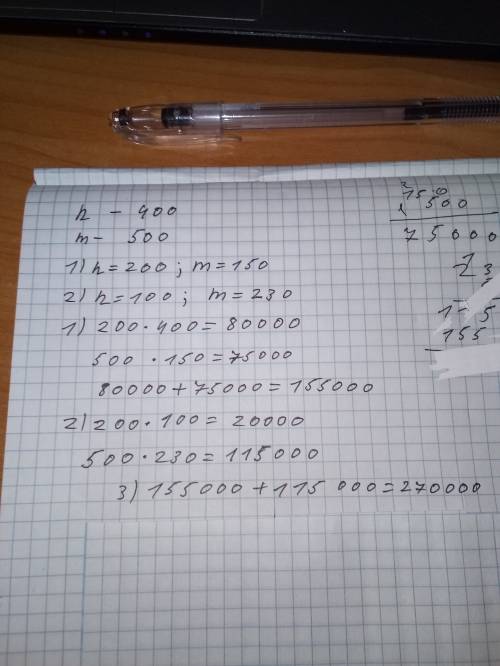 n - 400
m - 500
1) n=200; m=150
2) n=100; m=230
1) 200·400=80000
500 ·150=75000
80000+75000=155000
2) 200·100=20000
500·230=115000
3) 155000+115000=270000
500
75000
155